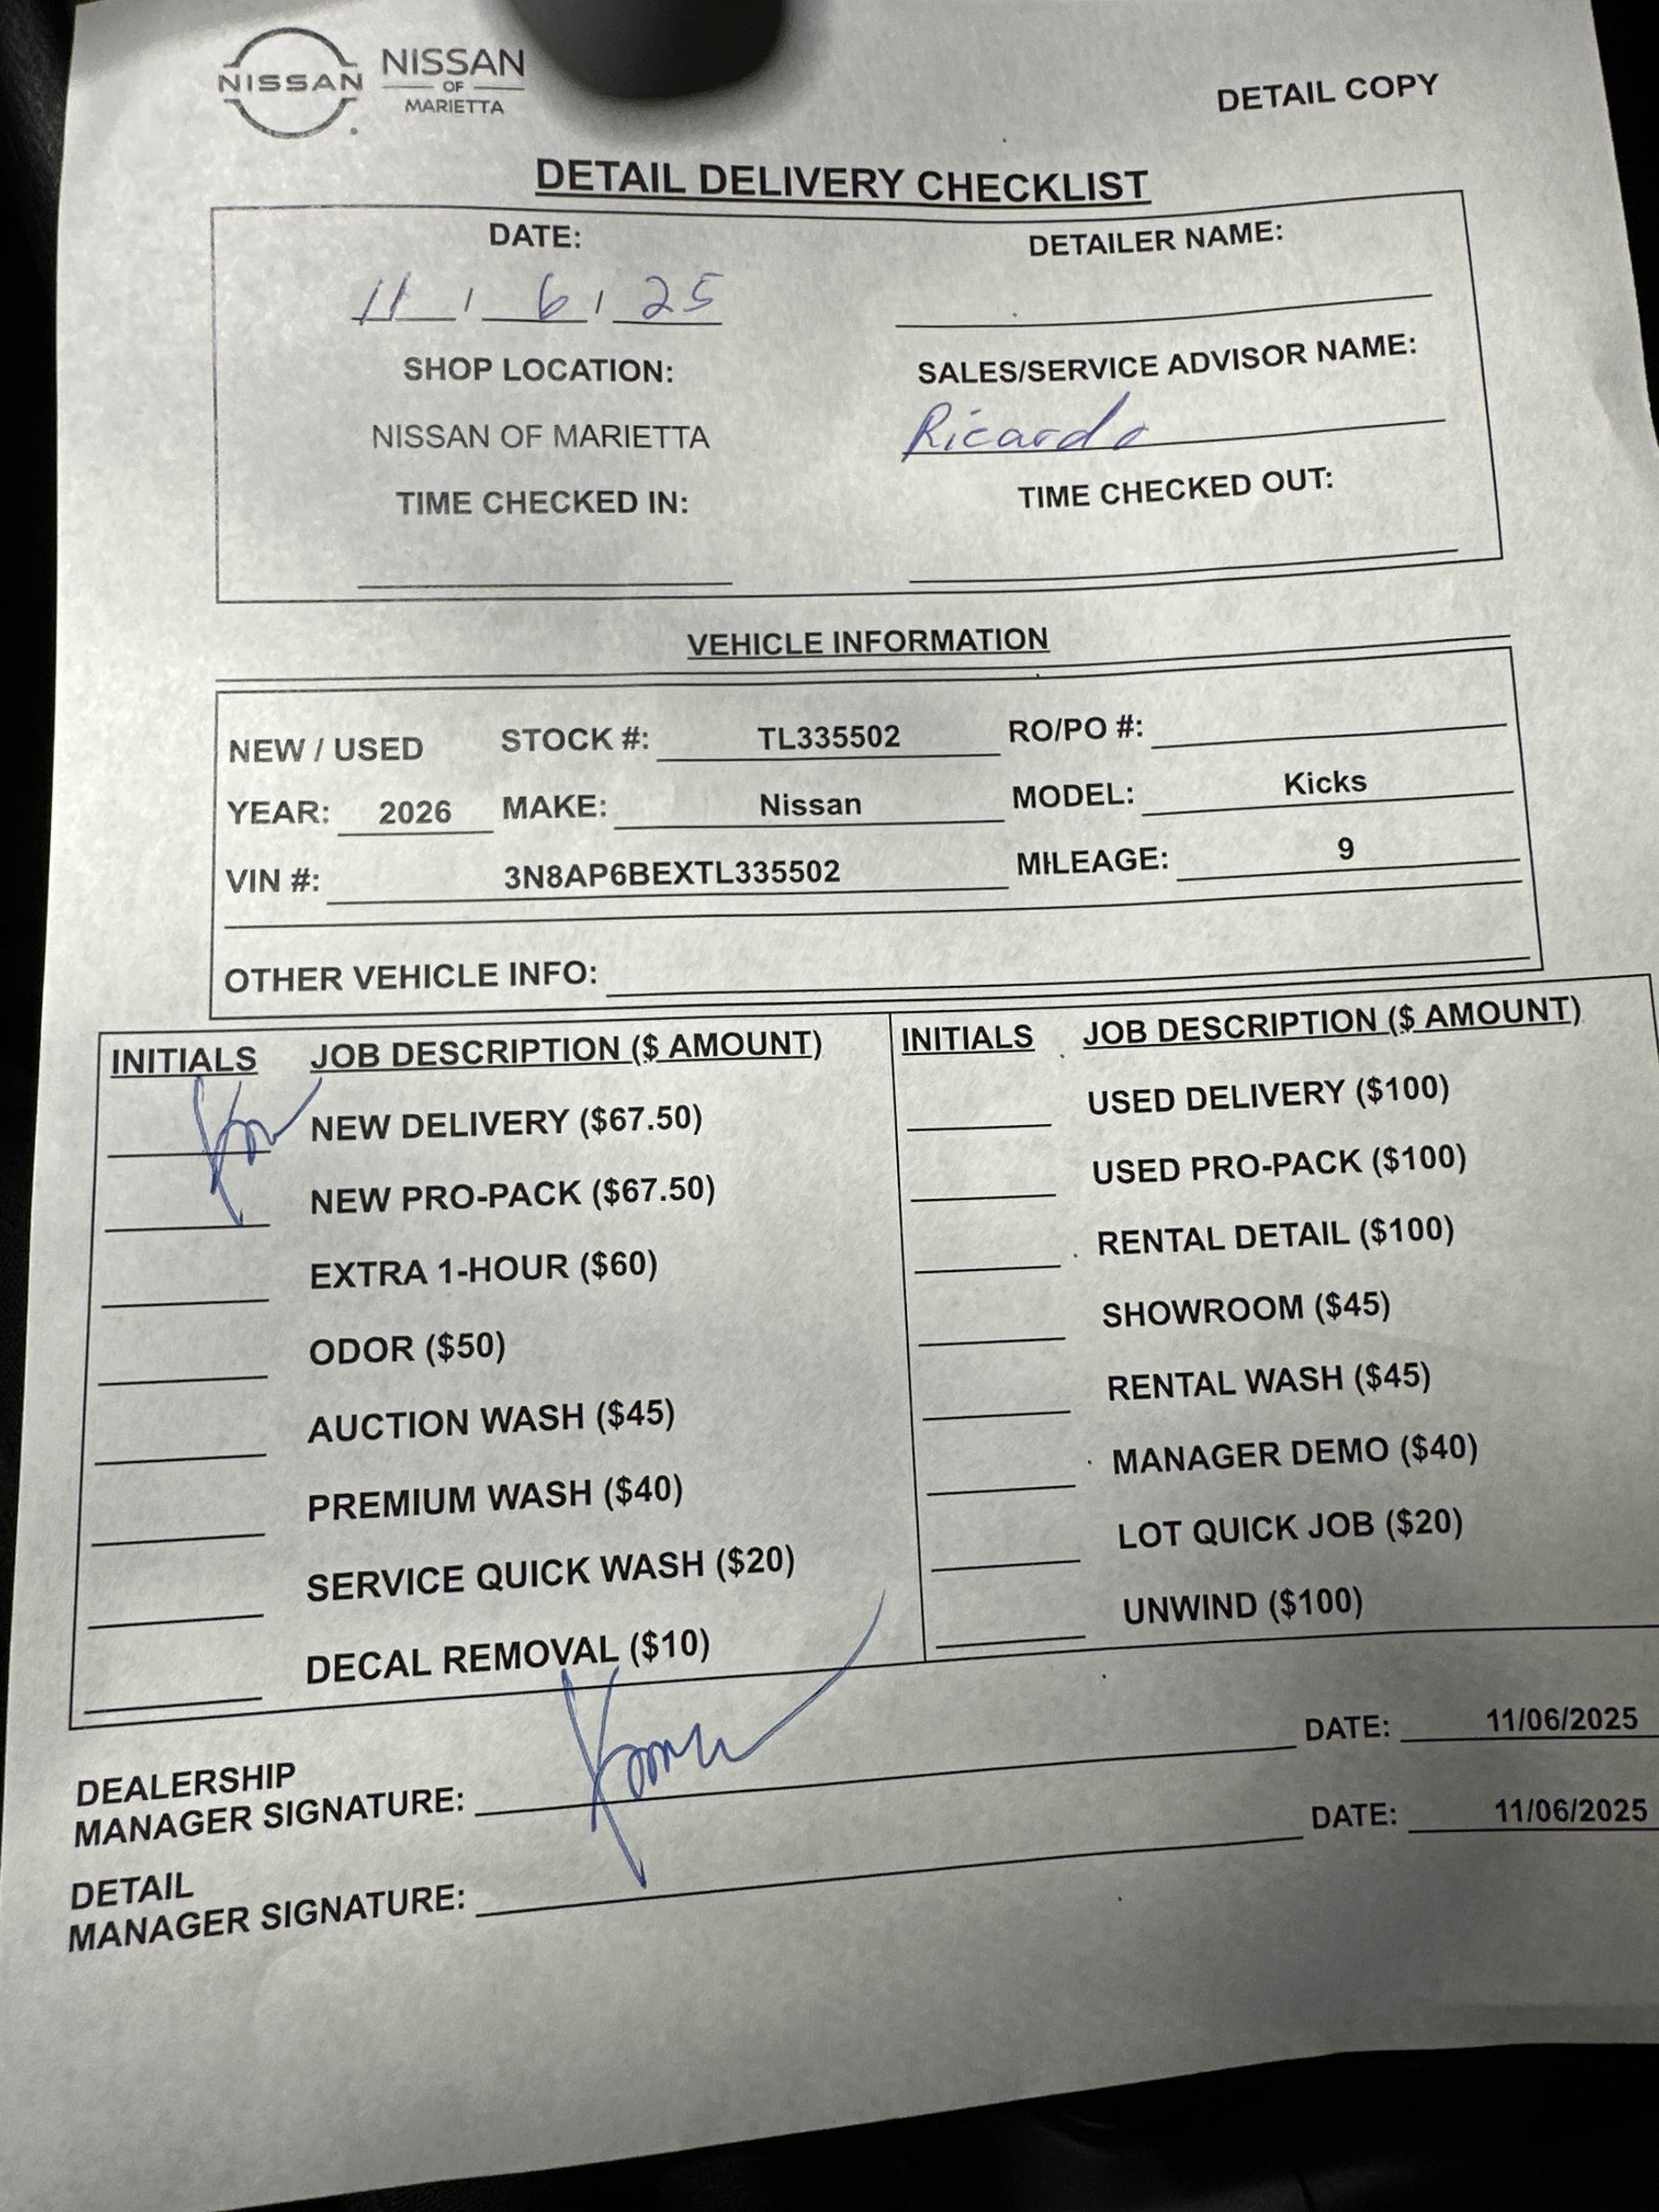 NISSAN
NISSAN
OF
MARIETTA
DETAIL COPY
DETAIL DELIVERY CHECKLIST
DATE: DETAILER NAME:
11 / 6 / 25
SHOP LOCATION: SALES/SERVICE ADVISOR NAME:
NISSAN OF MARIETTA Ricardo
TIME CHECKED IN: TIME CHECKED OUT:
VEHICLE INFORMATION
NEW / USED STOCK #: TL335502 RO/PO #:
YEAR: 2026 MAKE: Nissan MODEL: Kicks
VIN #: 3N8AP6BEXTL335502 MILEAGE: 9
OTHER VEHICLE INFO:
INITIALS JOB DESCRIPTION ($ AMOUNT)
NEW DELIVERY ($67.50)
NEW PRO-PACK ($67.50)
EXTRA 1-HOUR ($60)
ODOR ($50)
AUCTION WASH ($45)
PREMIUM WASH ($40)
SERVICE QUICK WASH ($20)
DECAL REMOVAL ($10)
INITIALS JOB DESCRIPTION ($ AMOUNT)
USED DELIVERY ($100)
USED PRO-PACK ($100)
RENTAL DETAIL ($100)
SHOWROOM ($45)
RENTAL WASH ($45)
MANAGER DEMO ($40)
LOT QUICK JOB ($20)
UNWIND ($100)
DEALERSHIP
MANAGER SIGNATURE: DATE: 11/06/2025
DETAIL
MANAGER SIGNATURE: DATE: 11/06/2025